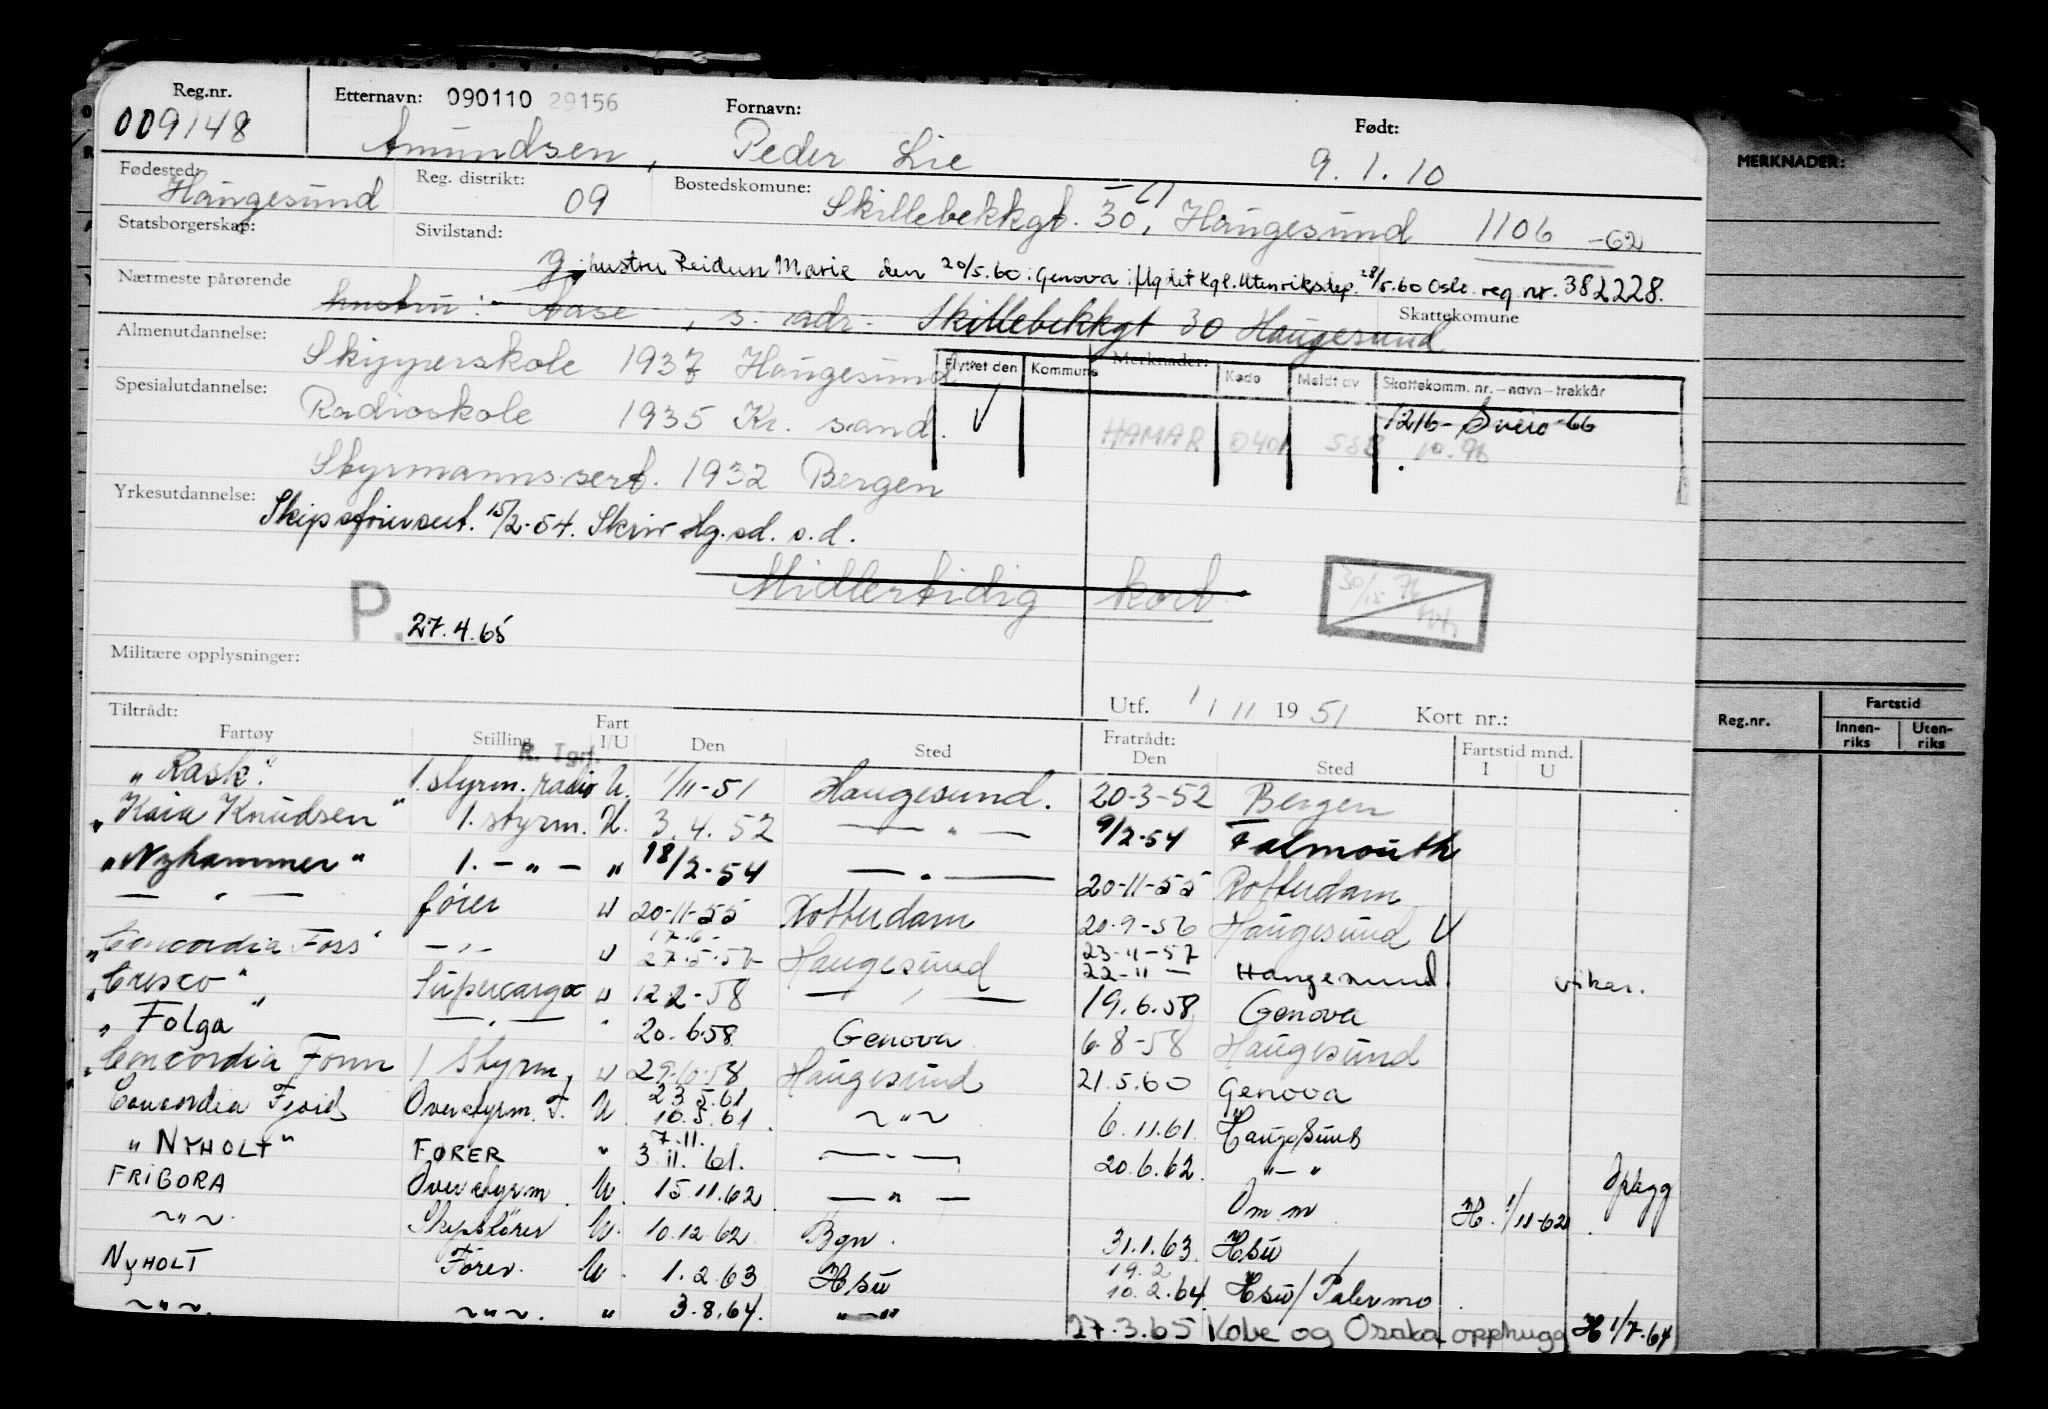 Reg.nr. Etternavn: 090110 29156 Fornavn: Født:
009148 Amundsen, Peder Lie 9.1.10
Fødested: Haugesund Reg. distrikt: 09 Bostedskomune: Skillebekkgt. 30, Haugesund 1106 -62
Statsborgerskap: Sivilstand: g.
hustru Reidun Marie den 20/5.60 i Genova iflg det Kgl. Utenriksdep. 28/5.60 Oslo. reg. nr. 382228.
Nærmeste pårørende hustru: Aase, s. adr. Skillebekkgt 30 Haugesund Skattekomune
Almenutdannelse: Skipperskole 1937 Haugesund
Flyttet den Kommune Merknader: Kode Meldt av Skattekomm. nr. – navn – trekkår
1216- Sveio -66
HAMAR 0401 10.76
Spesialutdannelse: Radioskole 1935 Kr. sand.
Styrmanns.sert. 1932 Bergen
Yrkesutdannelse: Skipsførersert. 15/2-54. Skriv Hg.sd. s.d.
Midlertidig kort
P. 27.4.65
Militære opplysninger:
Utf. 1/11 1951 Kort nr.:
Tiltrådt: Fratrådt:
Fartøy Stilling Fart I/U Den Sted Den Sted Fartstid mnd. I U
R. Tgrf.
"Rask" 1. styrm. radio U. 1/11-51 Haugesund. 20-3-52 Bergen
"Kaia Knudsen" 1. styrm. U. 3.4.52 — " — 9/2-54 Falmouth
"Nyhammer" 1. — " — " 18/2-54 — " — 20-11-55 Rotterdam
— " — fører U 20-11-55 Rotterdam 20-9-56 Haugesund V
17.6-
"Concordia Foss" — " — U 27.5.57 Haugesund 23-11-57
22-11 — Haugesund vikar.
"Cresco" Supercargo U 12.2-58 — " — 19.6.58 Genova
"Folga" — " — " 20.6.58 Genova 6-8-58 Haugesund
"Concordia Fonn 1 Styrm, U 29.10.58 Haugesund 21.5.60 Genova
23.5.61
Concordia Fjord Overstyrm. T. U. 10.5.61 ~ " ~ 6.11.61 Haugesund
7.11.
"NYHOLT" FØRER " 3.11.61. — " — 20.6.62 " — " Opplagg
FRIGORA Overstyrm. U. 15.11.62 — " — Omm. H. 1/11-62
~ " ~ Skipsfører U. 10.12.62 Bgn. 31.1.63 Hsu
19.2
NYHOLT Fører. U. 1.2.63 Hsu 10.2.64 Hsu/Palermo
~ " ~ ~ " ~. " 3.8.64. " — " 27.3.65 Kobe og Osaka opphugg H 1/7-64
MERKNADER:
Reg.nr. Fartstid
Innen-riks Uten-riks